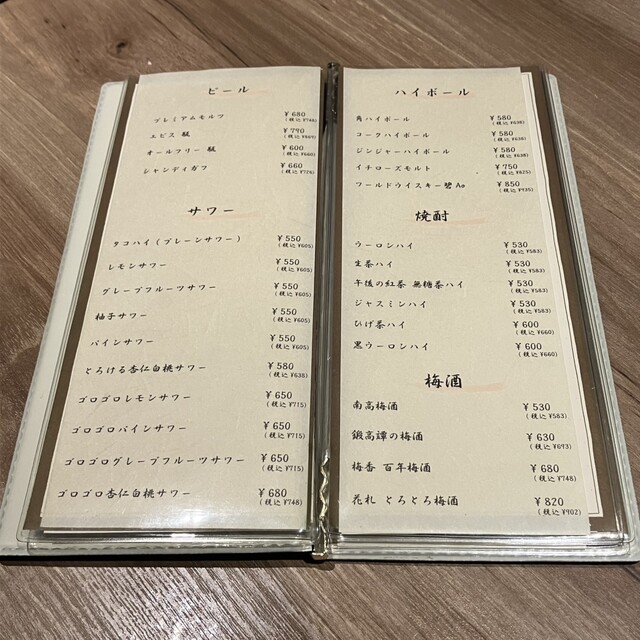 ビール
プレミアムモルツ ¥680
(税込 ¥748)
エビス 瓶 ¥790
(税込 ¥869)
オールフリー 瓶 ¥600
(税込 ¥660)
シャンディガフ ¥660
(税込 ¥726)
サワー
タコハイ（プレーンサワー） ¥550
(税込 ¥605)
レモンサワー ¥550
(税込 ¥605)
グレープフルーツサワー ¥550
(税込 ¥605)
柚子サワー ¥550
(税込 ¥605)
パインサワー ¥550
(税込 ¥605)
とろける杏仁白桃サワー ¥580
(税込 ¥638)
ゴロゴロレモンサワー ¥650
(税込 ¥715)
ゴロゴロパインサワー ¥650
(税込 ¥715)
ゴロゴログレープフルーツサワー ¥650
(税込 ¥715)
ゴロゴロ杏仁白桃サワー ¥680
(税込 ¥748)
ハイボール
角ハイボール ¥580
(税込 ¥638)
コークハイボール ¥580
(税込 ¥638)
ジンジャーハイボール ¥580
(税込 ¥638)
イチローズモルト ¥750
(税込 ¥825)
ワールドウイスキー碧Ao ¥850
(税込 ¥935)
焼酎
ウーロンハイ ¥530
(税込 ¥583)
生茶ハイ ¥530
(税込 ¥583)
午後の紅茶 無糖茶ハイ ¥530
(税込 ¥583)
ジャスミンハイ ¥530
(税込 ¥583)
ひげ茶ハイ ¥600
(税込 ¥660)
黒ウーロンハイ ¥600
(税込 ¥660)
梅酒
南高梅酒 ¥530
(税込 ¥583)
鍛高譚の梅酒 ¥630
(税込 ¥693)
梅香 百年梅酒 ¥680
(税込 ¥748)
花札 とろとろ梅酒 ¥820
(税込 ¥902)